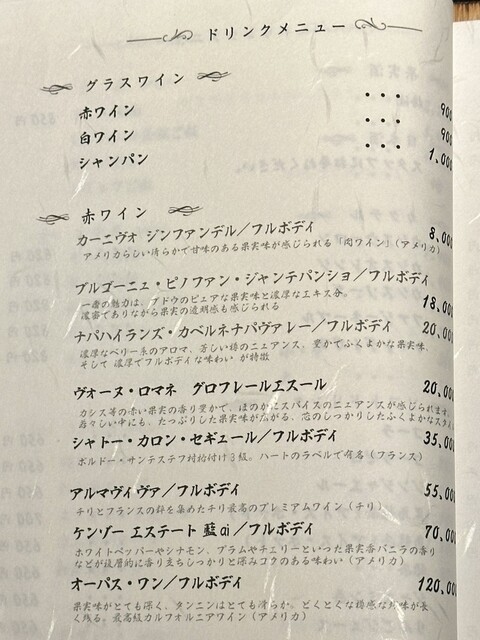 ドリンクメニュー
グラスワイン
赤ワイン ・・・ 900
白ワイン ・・・ 900
シャンパン ・・・ 1,000
赤ワイン
カーニヴォ ジンファンデル／フルボディ 8,000
アメリカらしい滑らかで甘味のある果実味が感じられる「肉ワイン」（アメリカ）
ブルゴーニュ・ピノファン・ジャンテパンショ／フルボディ 18,000
一番の魅力は、ブドウのピュアな果実味と濃厚なエキス分。
濃密でありながら果実の透明感も感じられる
ナパハイランズ・カベルネナパヴァレー／フルボディ 20,000
濃厚なベリー系のアロマ、芳しい樽のニュアンス、豊かでふくよかな果実味、
そして 濃厚でフルボディな味わい が特徴
ヴォーヌ・ロマネ グロフレールエスール 20,000
カシス等の赤い果実の香り豊かで、ほのかにスパイスのニュアンスが感じられます。
若々しい中にも、たっぷりした果実味が広がる、芯のしっかりしたふくよかなスタイ
シャトー・カロン・セギュール／フルボディ 35,000
ボルドー・サンテステフ村格付け3級。ハートのラベルで有名（フランス）
アルマヴィヴァ／フルボディ 55,000
チリとフランスの粋を集めたチリ最高のプレミアムワイン（チリ）
ケンゾー エステート 藍ai／フルボディ 70,000
ホワイトペッパーやシナモン、プラムやチェリーといった果実香バニラの香り
などが複層的に香り立ちしっかりと深みコクのある味わい（アメリカ）
オーパス・ワン／フルボディ 120,000
果実味がとても深く、タンニンはとても滑らか。どくとくな樽感な
く残る。最高級カルフォルニアワイン（アメリカ）